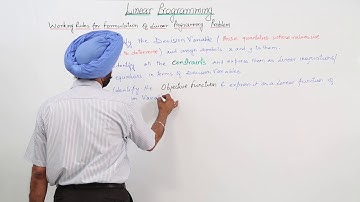 Linear Programming
Working Rules for Formulation of Linear Programming Problem
the Decision Variable (those quantities whose values we
to determine) and assign symbols x and y to them.
all the constraints and express them as linear inequations/
equations in terms of Decision Variables
Identify the Objective function & express it as a linear function of